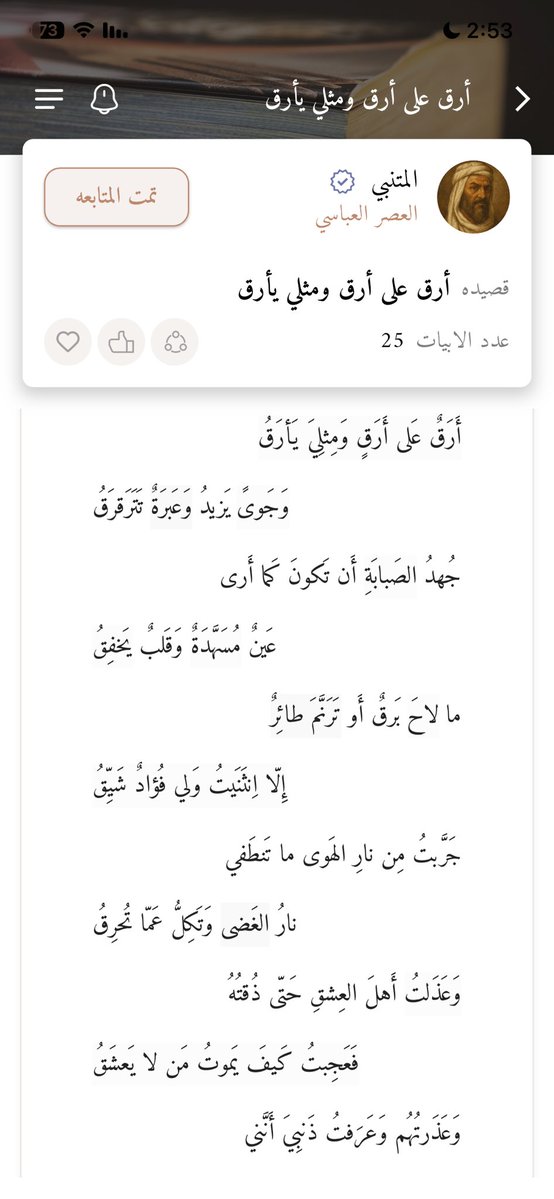 73 2:53
أرق على أرق ومثلي يأرق
المتنبي
تمت المتابعه
العصر العباسي
قصيده أرق على أرق ومثلي يأرق
عدد الابيات 25
أَرَقٌ عَلى أَرَقٍ وَمِثلِيَ يَأرَقُ
وَجَوىً يَزيدُ وَعَبرَةٌ تَتَرَقرَقُ
جُهدُ الصَبابَةِ أَن تَكونَ كَما أَرى
عَينٌ مُسَهَّدَةٌ وَقَلبٌ يَخفِقُ
ما لاحَ بَرقٌ أَو تَرَنَّمَ طائِرٌ
إِلّا اِنثَنَيتُ وَلي فُؤادٌ شَيِّقُ
جَرَّبتُ مِن نارِ الهَوى ما تَنطَفي
نارُ الغَضى وَتَكِلُّ عَمّا تُحرِقُ
وَعَذَلتُ أَهلَ العِشقِ حَتّى ذُقتُهُ
فَعَجِبتُ كَيفَ يَموتُ مَن لا يَعشَقُ
وَعَذَرتُهُم وَعَرَفتُ ذَنبِيَ أَنَّني